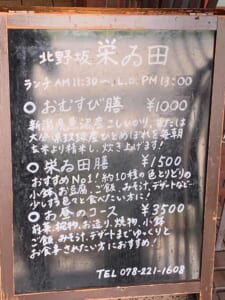 北野坂 栄ゐ田
ランチ AM 11:30〜 L.O. PM 13:00
○ おむすび膳 ¥1000
新潟県魚沼産こしひかり、または
大分県玖珠産ひとめぼれを毎朝
玄米より精米し、炊き上げます!
○ 栄ゐ田膳 ¥1500
おすすめNo1! 約10種の色とりどりの
小鉢、お豆腐、ご飯、みそ汁、デザートなど…
少しずつ色々と食べたい方に!
○ お昼のコース ¥3500
前菜、椀物、お造り、焼物、小鉢
ご飯、みそ汁、デザートまでゆっくりと
お食事されたい方におすすめ!
TEL 078-221-1608